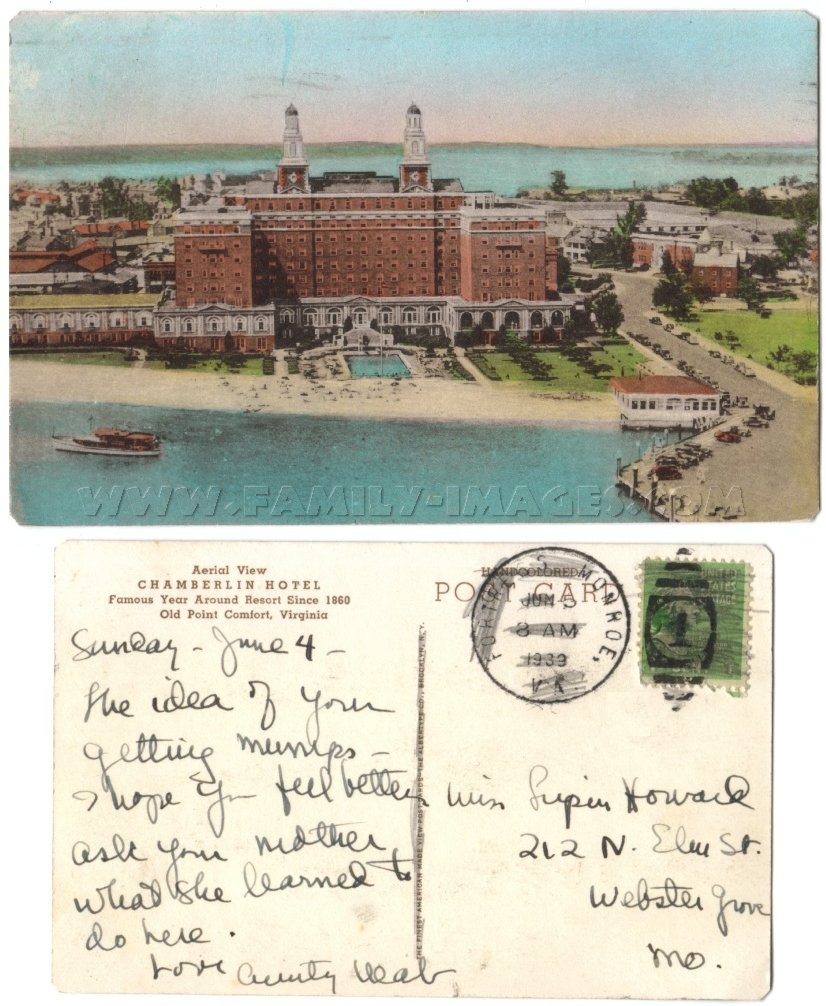 WWW.FAMILY-IMAGES.COM
Aerial View
CHAMBERLIN HOTEL
Famous Year Around Resort Since 1860
Old Point Comfort, Virginia
HANDCOLORED
POST CARD
FORT MONROE,
JUN 5
8 AM
1939
VA.
1
Sunday - June 4 -
The idea of your
getting mumps -
I hope you feel better
ask your mother
what she learned to
do here.
Love Aunty
THE FINEST AMERICAN MADE VIEW POSTCARDS - THE ALBERTYPE CO., BROOKLYN, N.Y.
Miss Howard
212 N. Elm St.
Webster Grove
Mo.
UNITED STATES POSTAGE